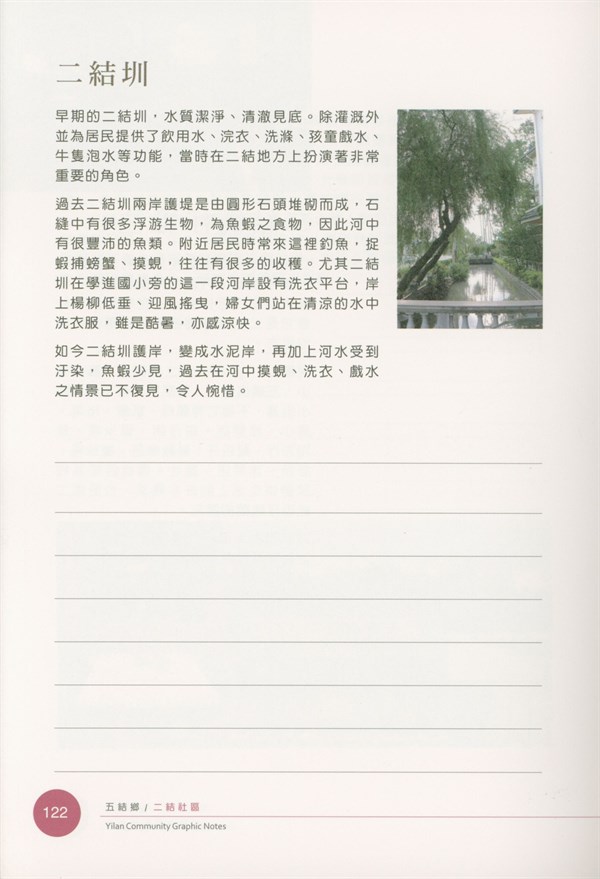 二結圳
早期的二結圳，水質潔淨、清澈見底。除灌溉外
並為居民提供了飲用水、浣衣、洗滌、孩童戲水、
牛隻泡水等功能，當時在二結地方上扮演著非常
重要的角色。
過去二結圳兩岸護堤是由圓形石頭堆砌而成，石
縫中有很多浮游生物，為魚蝦之食物，因此河中
有很豐沛的魚類。附近居民時常來這裡釣魚，捉
蝦捕螃蟹、摸蜆，往往有很多的收穫。尤其二結
圳在學進國小旁的這一段河岸設有洗衣平台，岸
上楊柳低垂、迎風搖曳，婦女們站在清涼的水中
洗衣服，雖是酷暑，亦感涼快。
如今二結圳護岸，變成水泥岸，再加上河水受到
汙染，魚蝦少見，過去在河中摸蜆、洗衣、戲水
之情景已不復見，令人惋惜。
122
五結鄉 / 二結社區
Yilan Community Graphic Notes